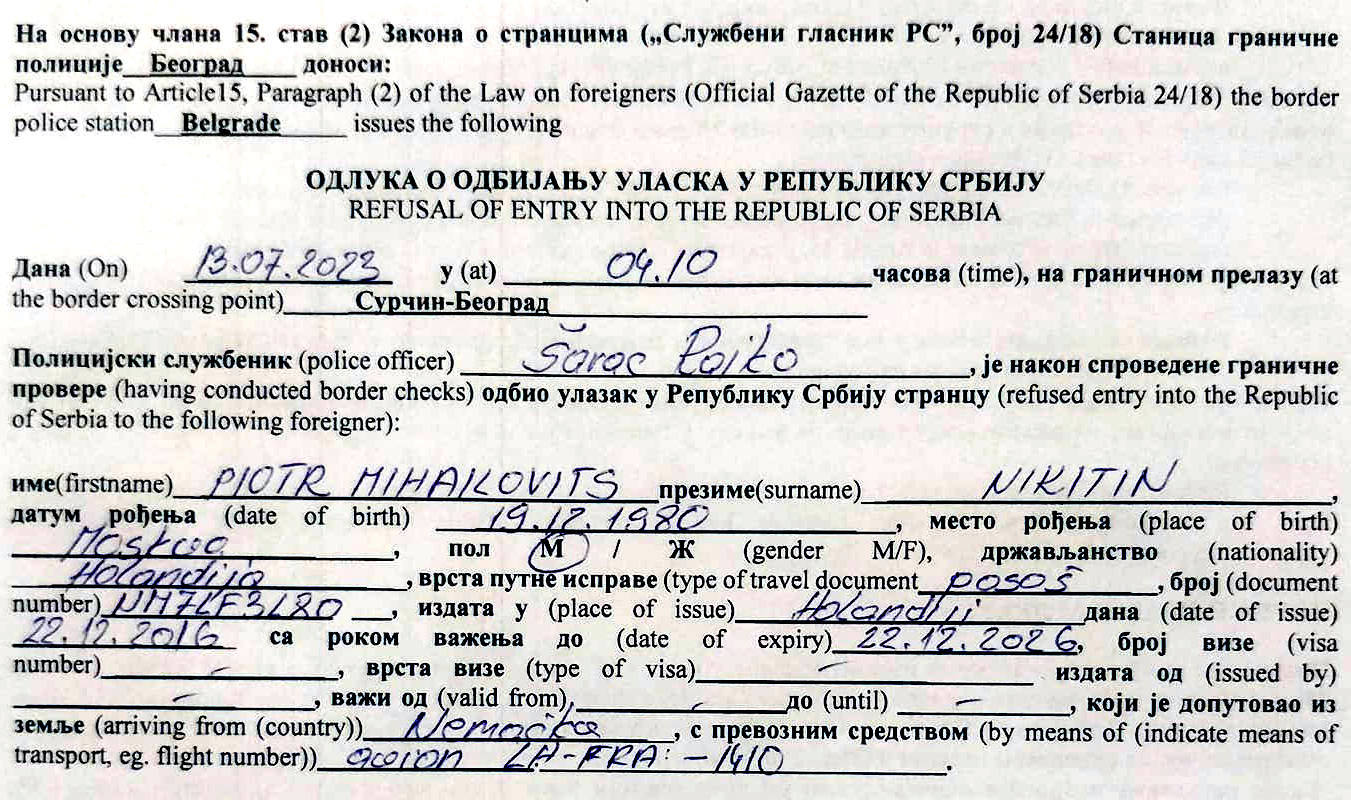 На основу члана 15. став (2) Закона о странцима („Службени гласник РС”, број 24/18) Станица граничне
полиције Београд доноси:
Pursuant to Article15, Paragraph (2) of the Law on foreigners (Official Gazette of the Republic of Serbia 24/18) the border
police station Belgrade issues the following
ОДЛУКА О ОДБИЈАЊУ УЛАСКА У РЕПУБЛИКУ СРБИЈУ
REFUSAL OF ENTRY INTO THE REPUBLIC OF SERBIA
Дана (On) 13.07.2023 у (at) 04.10 часова (time), на граничном прелазу (at
the border crossing point) Сурчин-Београд
Полицијски службеник (police officer) Šarac Rajko, је након спроведене граничне
провере (having conducted border checks) одбио улазак у Републику Србију странцу (refused entry into the Republic
of Serbia to the following foreigner):
име(firstname) PIOTR MIHAILOVITS презиме(surname) NIKITIN,
датум рођења (date of birth) 19.12.1980, место рођења (place of birth)
Moskva, пол М / Ж (gender M/F), држављанство (nationality)
Holandija, врста путне исправе (type of travel document pasoš, број (document
number) NM7LF3L80, издата у (place of issue) Holandiji дана (date of issue)
22.12.2016 са роком важења до (date of expiry) 22.12.2026, број визе (visa
number) –, врста визе (type of visa) – издата од (issued by)
–, важи од (valid from), – до (until) –, који је допутовао из
земље (arriving from (country)) Nemačka, с превозним средством (by means of (indicate means of
transport, eg. flight number)) avion LA-FRA-1410.